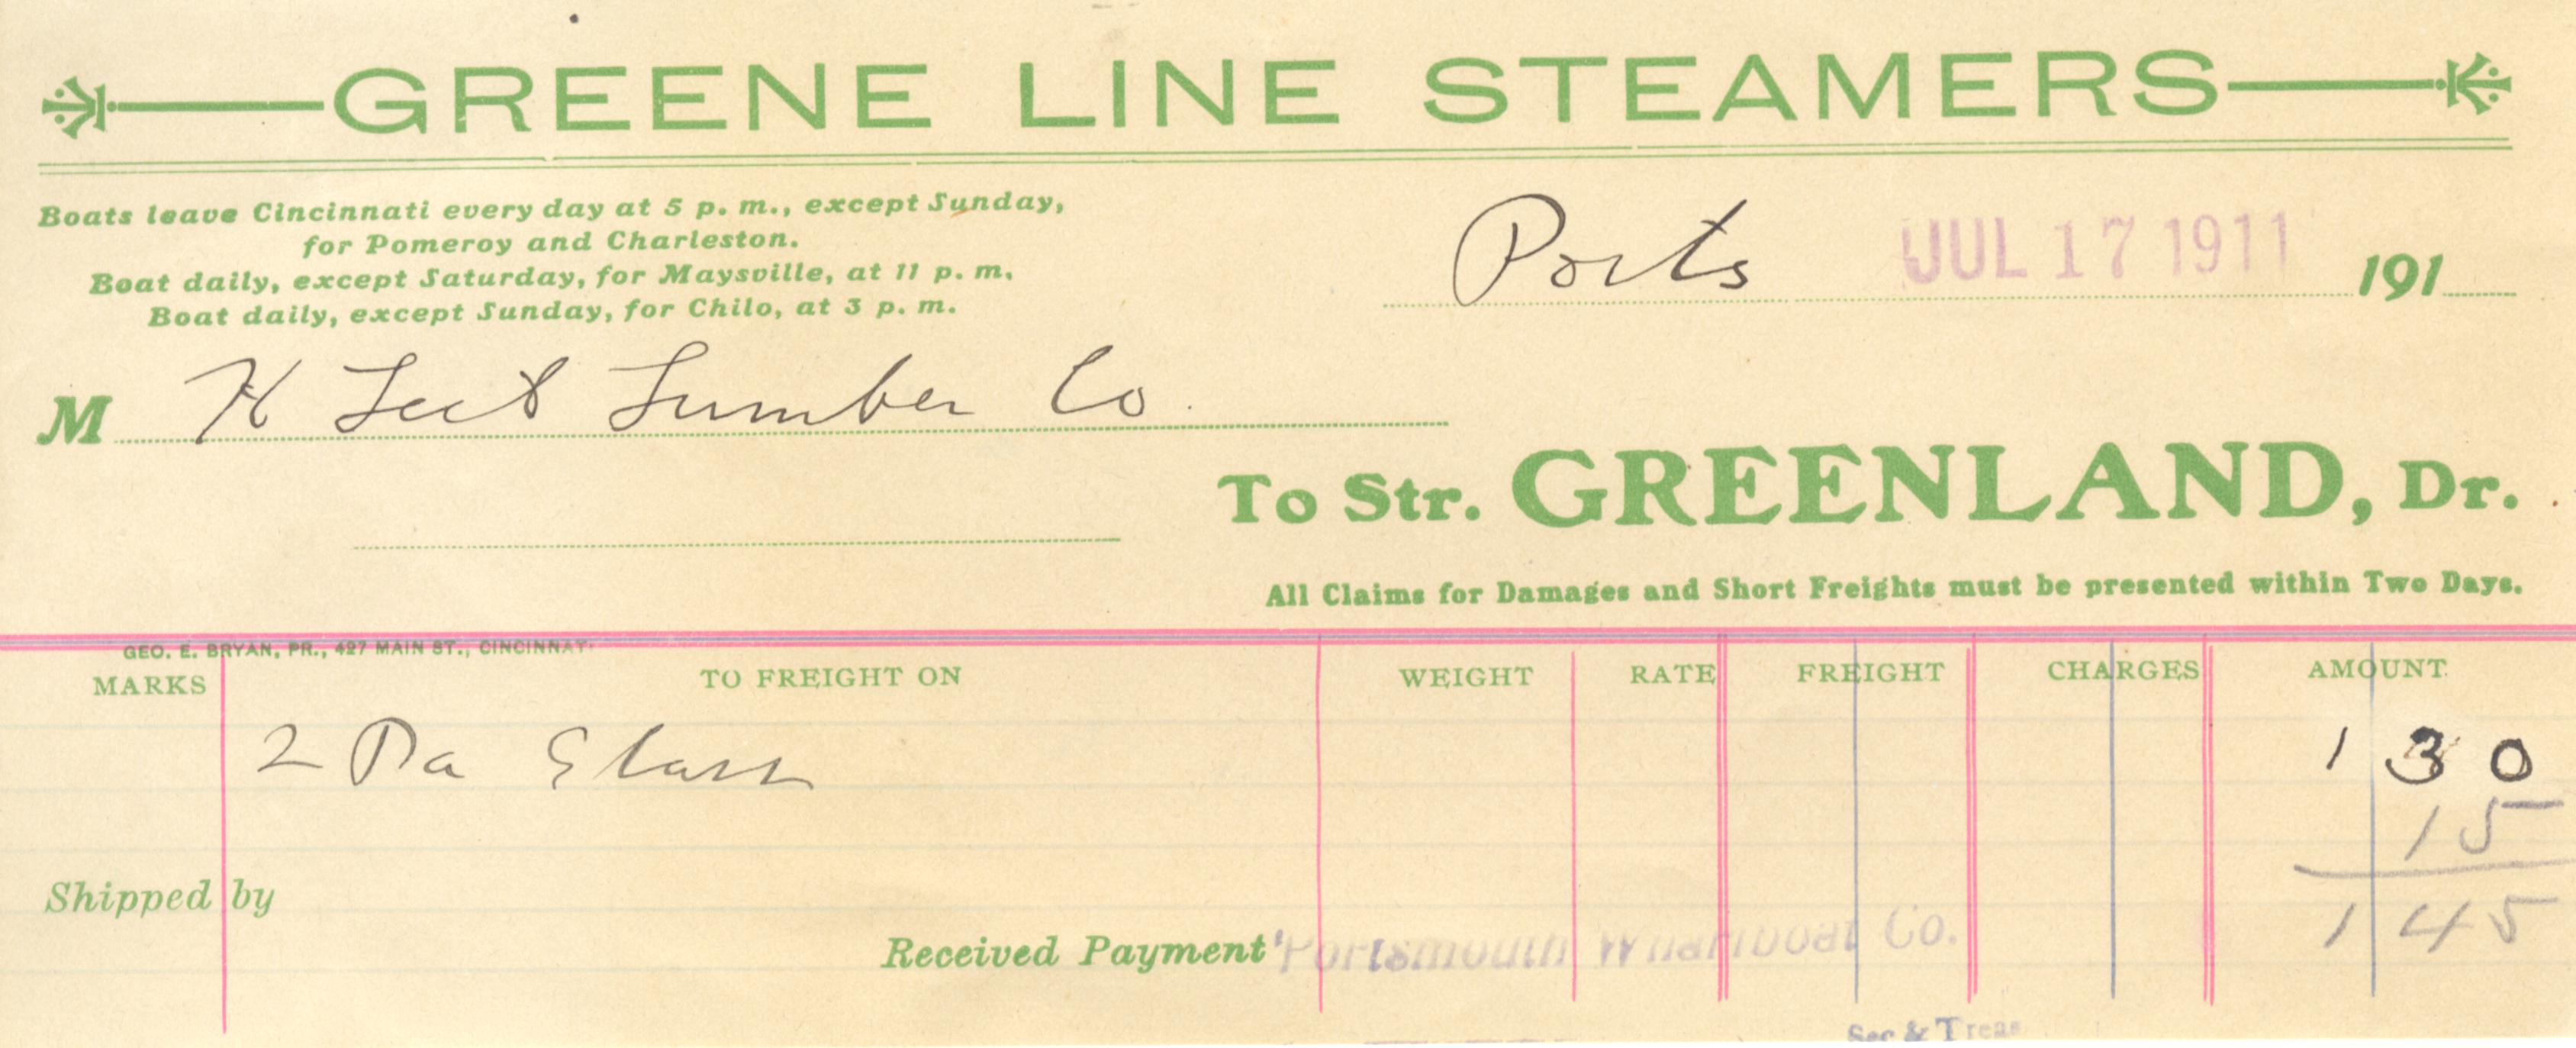 GREENE LINE STEAMERS
Boats leave Cincinnati every day at 5 p. m., except Sunday,
for Pomeroy and Charleston.
Boat daily, except Saturday, for Maysville, at 11 p. m.
Boat daily, except Sunday, for Chilo, at 3 p. m.
Ports JUL 17 1911 191
M H Leet Lumber Co.
To Str. GREENLAND, Dr.
All Claims for Damages and Short Freights must be presented within Two Days.
GEO. E. BRYAN, PR., 427 MAIN ST., CINCINNAT
MARKS TO FREIGHT ON WEIGHT RATE FREIGHT CHARGES AMOUNT
2 Pa Glass 1 30
15
Shipped by
1 45
Received Payment Portsmouth Wharfboat Co.
Sec & Treas